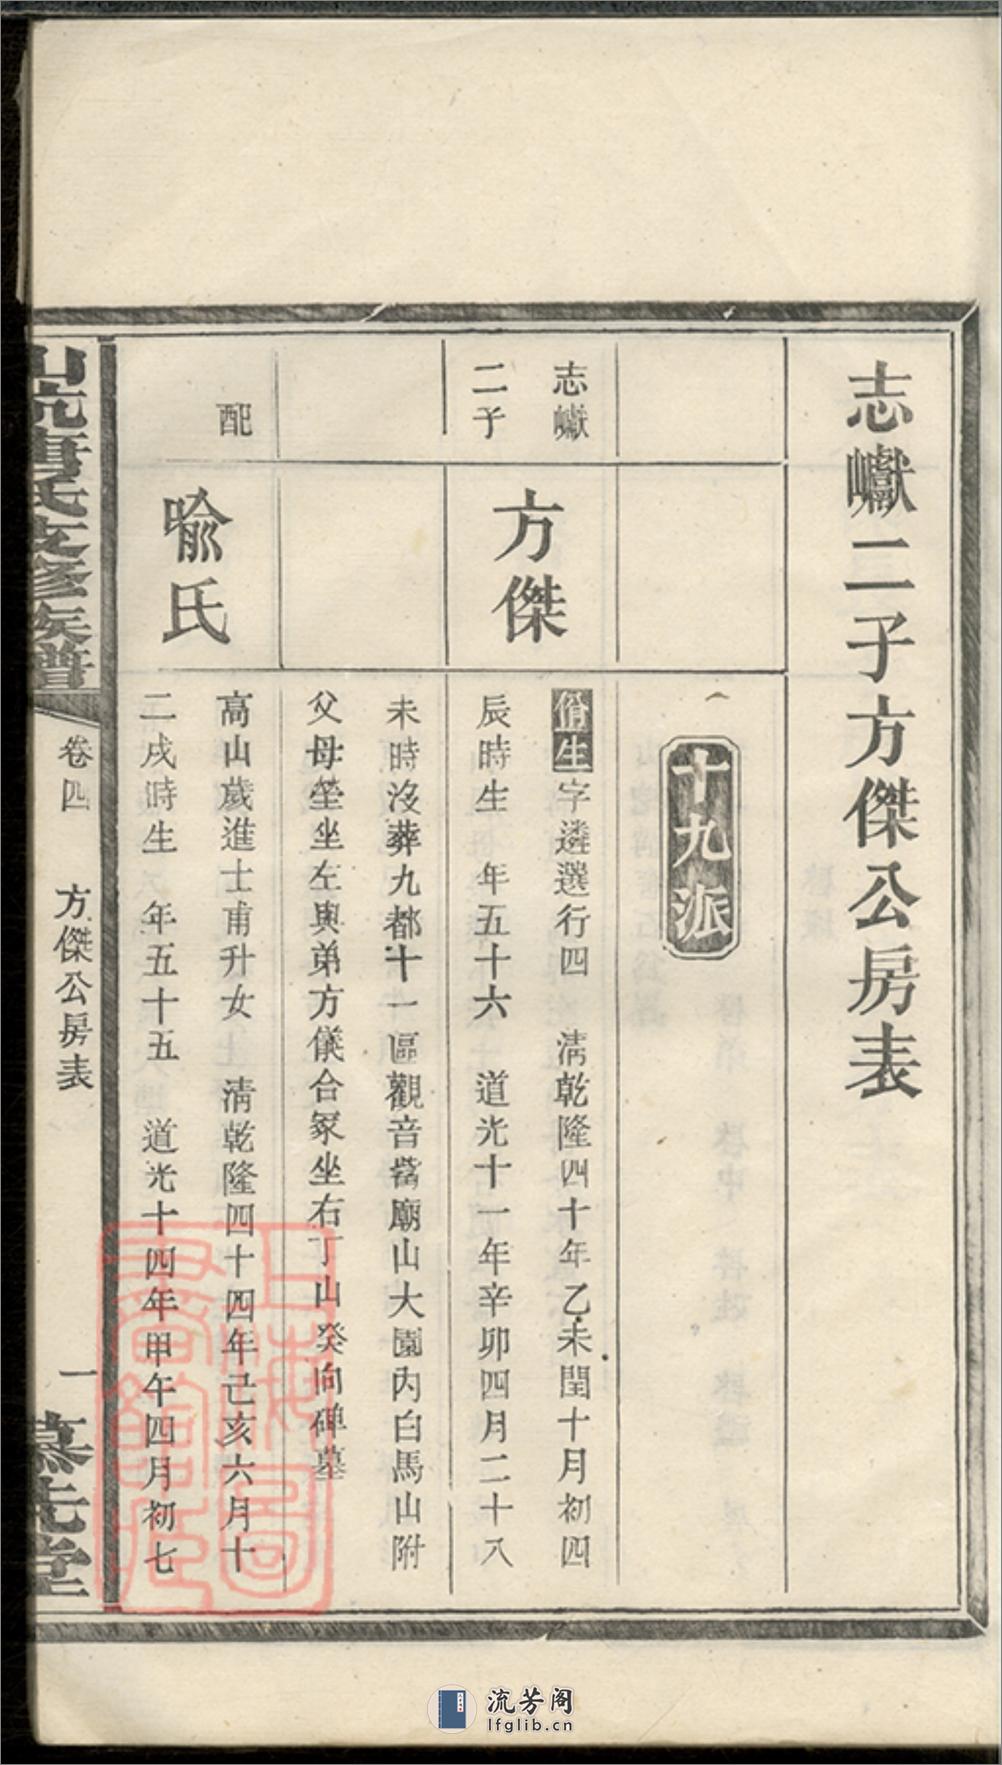 志巘二子方傑公房表
十九派
志巘
二子
方傑
佾生字遴選行四　清乾隆四十年乙未閏十月初四
辰時生　年五十六　道光十一年辛卯四月二十八
未時沒葬九都十一區觀音嵓廟山大園內白馬山附
父母塋坐左與弟方儀合冢坐右丁山癸向碑墓
配
喻氏
高山歲進士甫升女　清乾隆四十四年己亥六月十
二戌時生　年五十五　道光十四年甲午四月初七
唐氏支修族譜
卷四
方傑公房表
一
慕先堂
上海圖書館藏
流芳阁
lfglib.cn